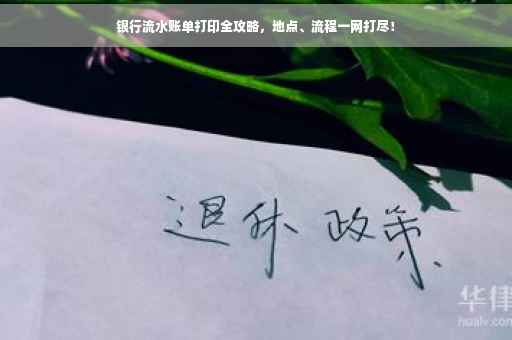 银行流水账单打印全攻略，地点、流程一网打尽！
退休 政策
华律
hualv.com